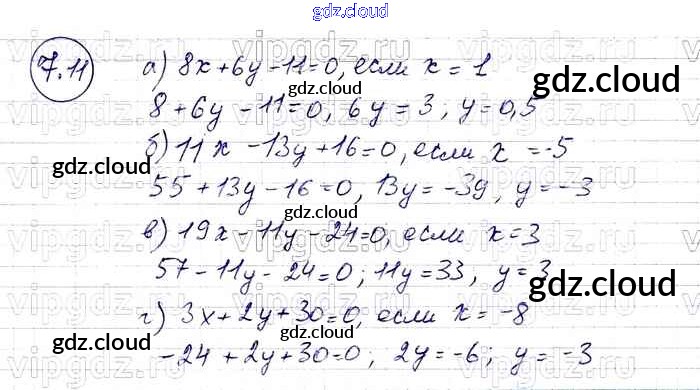 gdz.cloud
7.11
а) 8x + 6y - 11 = 0, если x = 1
gdz.cloud
8 + 6y - 11 = 0, 6y = 3; y = 0,5
gdz.cloud
б) 11x - 13y + 16 = 0, если x = -5
gdz.cloud
55 + 13y - 16 = 0, 13y = -39, y = -3
gdz.cloud
в) 19x - 11y - 24 = 0, если x = 3
57 - 11y - 24 = 0; 11y = 33, y = 3
gdz.cloud
г) 3x + 2y + 30 = 0, если x = -8
gdz.cloud
-24 + 2y + 30 = 0; 2y = -6; y = -3
gdz.cloud
vipgdz